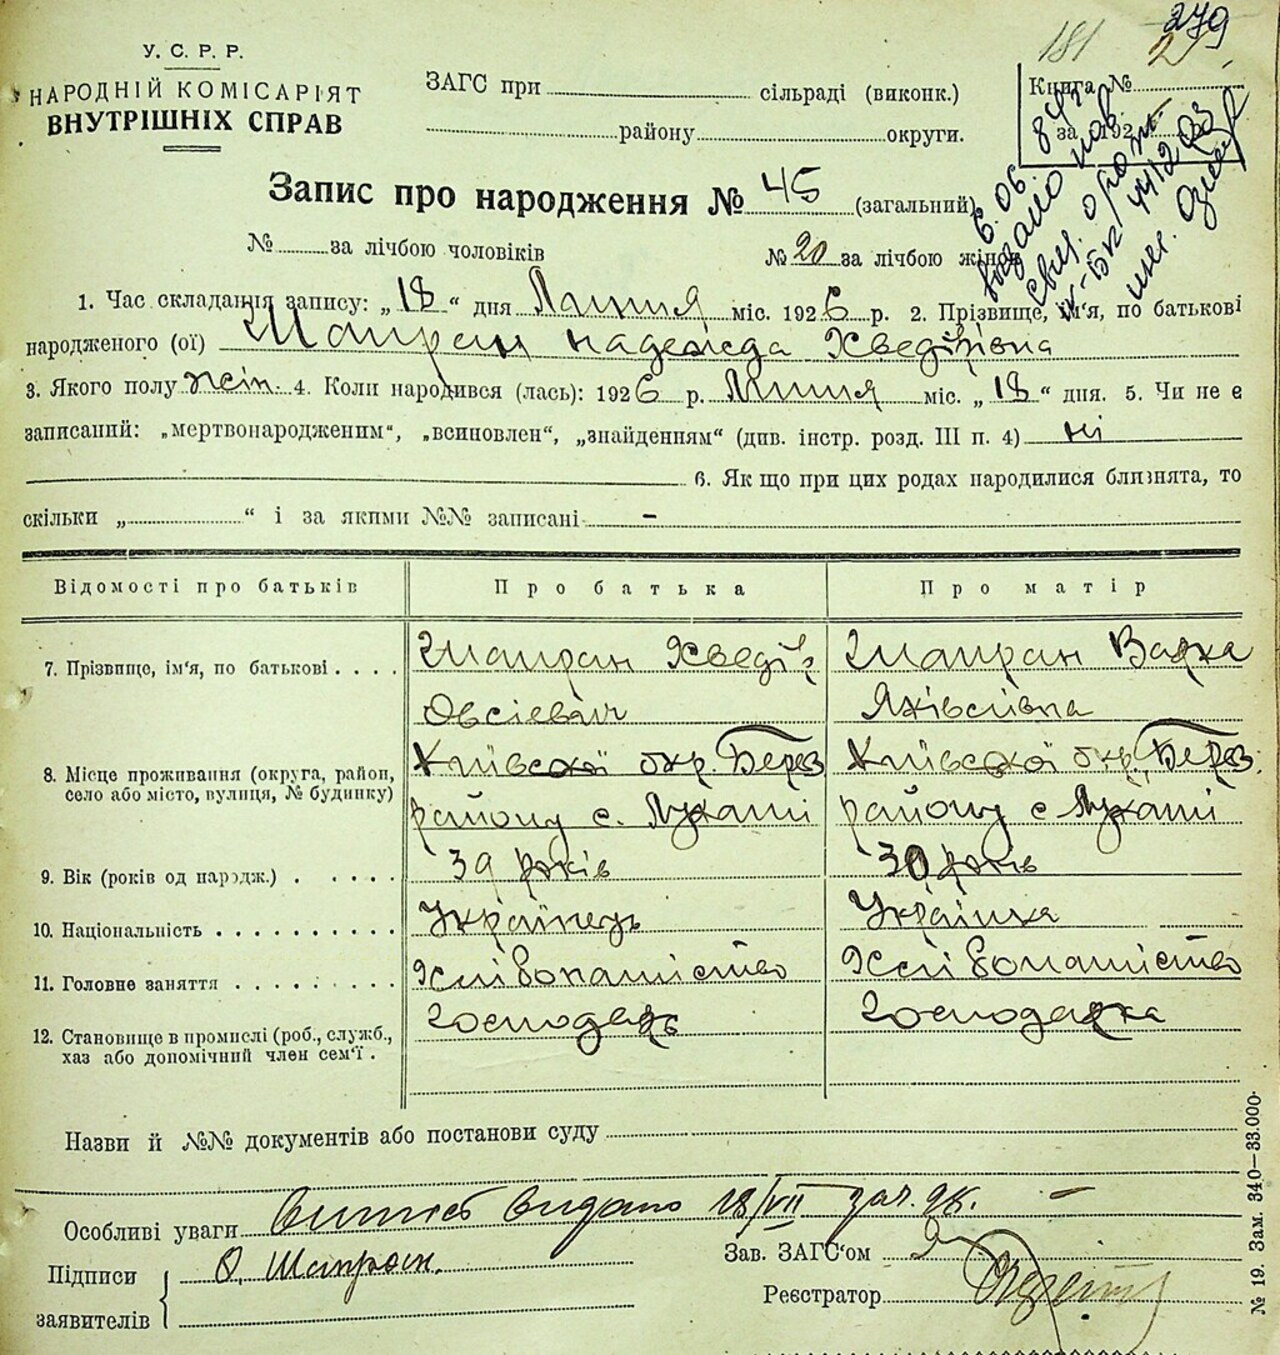 279
181 2
У. С. Р. Р.
НАРОДНІЙ КОМІСАРІЯТ
ВНУТРІШНІХ СПРАВ
ЗАГС при сільраді (виконк.)
району округи.
Книга №
за 192
6.06. 84
видано пов
свід. о рожд
V-БК 441203
Запис про народження № 45 (загальний)
№ за лічбою чоловіків № 20 за лічбою жінок
1. Час складання запису: „18“ дня Липня міс. 1926 р. 2. Прізвище, ім'я, по батькові
народженого (ої) Шапран Надежда Хведірівна
3. Якого полу жін. 4. Коли народився (лась): 1926 р. Липня міс. „18“ дня. 5. Чи не є
записаний: „мертвонародженим“, „всиновлен“, „знайденням“ (див. інстр. розд. III п. 4) ні
6. Як що при цих родах народилися близнята, то
скільки „ “ і за якими №№ записані -
Відомості про батьків Про батька Про матір
7. Прізвище, ім'я, по батькові . . . . Шапран Хведір Шапран Варка
Овсієвич Яківсівна
8. Місце проживання (округа, район, Київської окр. Берез Київської окр. Берез.
село або місто, вулиця, № будинку) району с. Лукаші району с Лукаші
9. Вік (років од народж.) . . . . . 39 років 30 років
10. Національність . . . . . . . . . . Українець Українка
11. Головне заняття . . . . . . . . . Хлівопашіство Хлівопашіство
12. Становище в промислі (роб., служб., Господарь Господарка
хаз або допомічний член сем'ї .
Назви й №№ документів або постанови суду
Особливі уваги Витяг видано 18/VII
Підписи О. Шапран. Зав. ЗАГС'ом
заявителів Реєстратор
№ 19. Зам. 340—33.000.